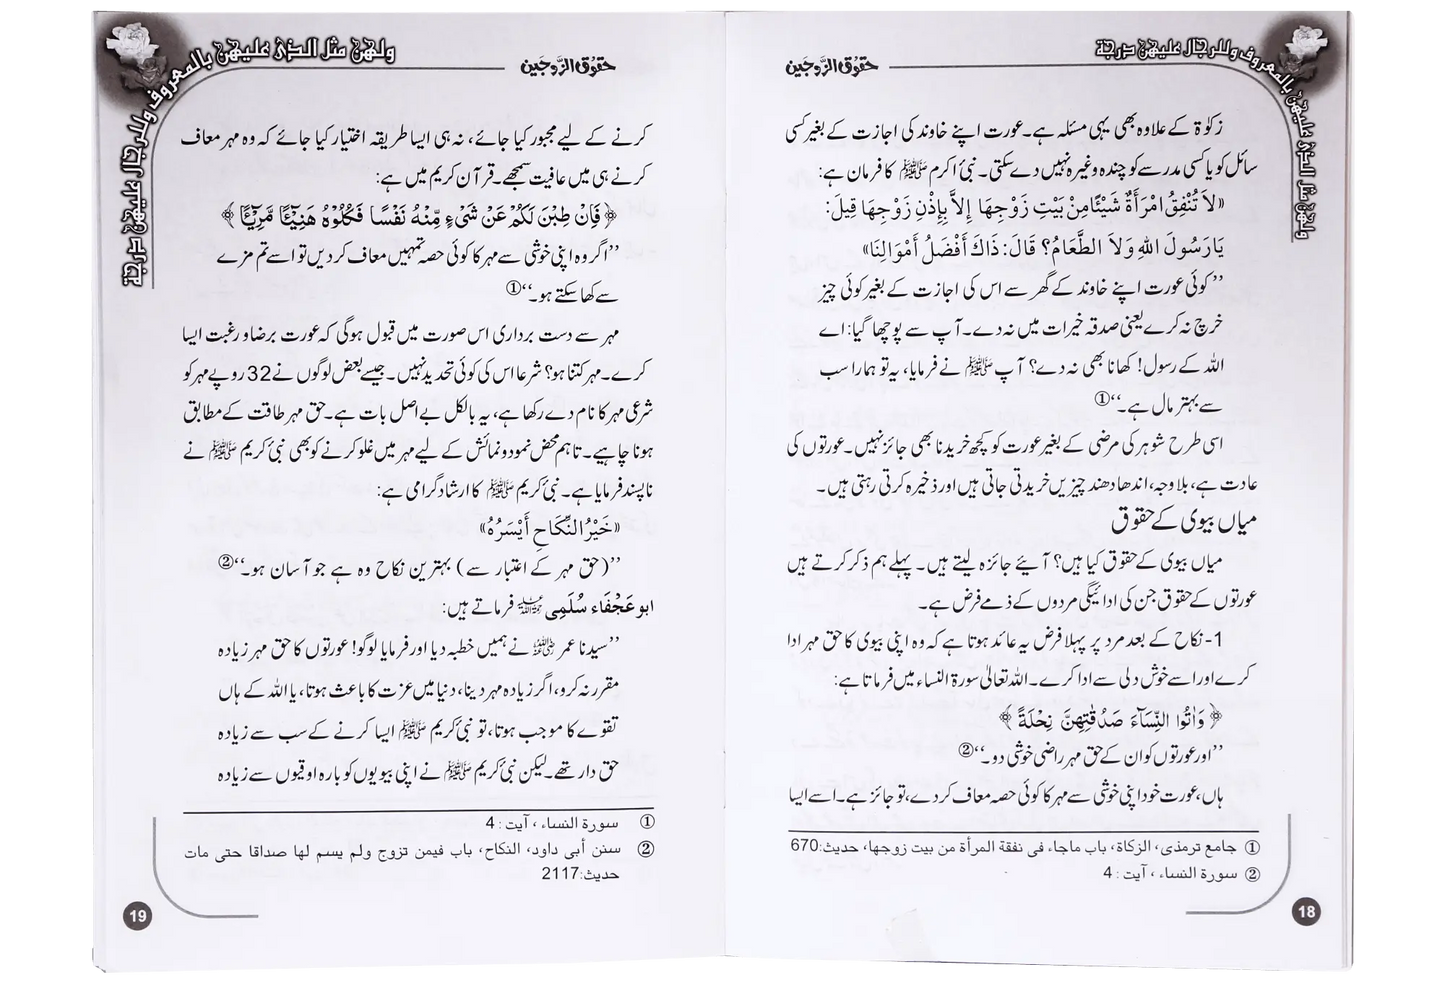 ولهن مثل الذی علیهن بالمعروف وللرجال علیهن درجة
حقوق الزّوجَین
زکوٰۃ کے علاوہ بھی یہی مسئلہ ہے۔ عورت اپنے خاوند کی اجازت کے بغیر کسی
سائل کو یا کسی مدرسے کو چندہ وغیرہ نہیں دے سکتی۔ نبیٔ اکرم ﷺ کا فرمان ہے:
«لاَ تُنْفِقُ امْرَأَةٌ شَيْئًا مِنْ بَيْتِ زَوْجِهَا إِلاَّ بِإِذْنِ زَوْجِهَا قِيلَ:
يَارَسُولَ اللهِ وَلاَ الطَّعَامُ؟ قَالَ: ذَاكَ أَفْضَلُ أَمْوَالِنَا»
’’کوئی عورت اپنے خاوند کے گھر سے اس کی اجازت کے بغیر کوئی چیز
خرچ نہ کرے یعنی صدقہ خیرات میں نہ دے۔ آپ سے پوچھا گیا: اے
اللہ کے رسول! کھانا بھی نہ دے؟ آپ ﷺ نے فرمایا، یہ تو ہمارا سب
سے بہتر مال ہے۔‘‘①
اسی طرح شوہر کی مرضی کے بغیر عورت کو کچھ خریدنا بھی جائز نہیں۔ عورتوں کی
عادت ہے، بلا وجہ، اندھا دھند چیزیں خریدتی جاتی ہیں اور ذخیرہ کرتی رہتی ہیں۔
میاں بیوی کے حقوق
میاں بیوی کے حقوق کیا ہیں؟ آیئے جائزہ لیتے ہیں۔ پہلے ہم ذکر کرتے ہیں
عورتوں کے حقوق جن کی ادائیگی مردوں کے ذمے فرض ہے۔
1- نکاح کے بعد مرد پر پہلا فرض یہ عائد ہوتا ہے کہ وہ اپنی بیوی کا حق مہر ادا
کرے اور اسے خوش دلی سے ادا کرے۔ اللہ تعالیٰ سورۃ النساء میں فرماتا ہے:
﴿ وَاٰتُوا النِّسَآءَ صَدُقٰتِهِنَّ نِحْلَةً ﴾
’’اور عورتوں کو ان کے حق مہر راضی خوشی دو۔‘‘②
ہاں، عورت خود اپنی خوشی سے مہر کا کوئی حصہ معاف کر دے، تو جائز ہے۔ اسے ایسا
① جامع ترمذی، الزکاة، باب ماجاء فی نفقة المرأة من بیت زوجها، حدیث:670
② سورة النساء ، آیت : 4
18
ولهن مثل الذی علیهن بالمعروف وللرجال علیهن درجة
حقوق الزّوجَین
کرنے کے لیے مجبور کیا جائے، نہ ہی ایسا طریقہ اختیار کیا جائے کہ وہ مہر معاف
کرنے ہی میں عافیت سمجھے۔ قرآن کریم میں ہے:
﴿ فَاِنْ طِبْنَ لَكُمْ عَنْ شَىْءٍ مِّنْهُ نَفْسًا فَكُلُوْهُ هَنِيْٓــًٔا مَّرِيْٓــًٔا ﴾
’’اگر وہ اپنی خوشی سے مہر کا کوئی حصہ تمہیں معاف کر دیں تو اسے تم مزے
سے کھا سکتے ہو۔‘‘①
مہر سے دست برداری اس صورت میں قبول ہوگی کہ عورت برضا و رغبت ایسا
کرے۔ مہر کتنا ہو؟ شرعا اس کی کوئی تحدید نہیں۔ جیسے بعض لوگوں نے 32 روپے مہر کو
شرعی مہر کا نام دے رکھا ہے، یہ بالکل بے اصل بات ہے۔ حق مہر طاقت کے مطابق
ہونا چاہیے۔ تاہم محض نمود و نمائش کے لیے مہر میں غلو کرنے کو بھی نبیٔ کریم ﷺ نے
ناپسند فرمایا ہے۔ نبیٔ کریم ﷺ کا ارشاد گرامی ہے:
«خَيْرُ النِّكَاحِ أَيْسَرُهُ»
’’(حق مہر کے اعتبار سے) بہترین نکاح وہ ہے جو آسان ہو۔‘‘②
ابو عَجْفَاء سُلَمِی رحمہ اللہ فرماتے ہیں:
’’سیدنا عمر رضی اللہ عنہ نے ہمیں خطبہ دیا اور فرمایا لوگو! عورتوں کا حق مہر زیادہ
مقرر نہ کرو، اگر زیادہ مہر دینا، دنیا میں عزت کا باعث ہوتا، یا اللہ کے ہاں
تقوے کا موجب ہوتا، تو نبیٔ کریم ﷺ ایسا کرنے کے سب سے زیادہ
حق دار تھے۔ لیکن نبیٔ کریم ﷺ نے اپنی بیویوں کو بارہ اوقیوں سے زیادہ
① سورة النساء ، آیت : 4
② سنن أبی داود، النکاح، باب فیمن تزوج ولم یسم لها صداقا حتی مات
حدیث:2117
19